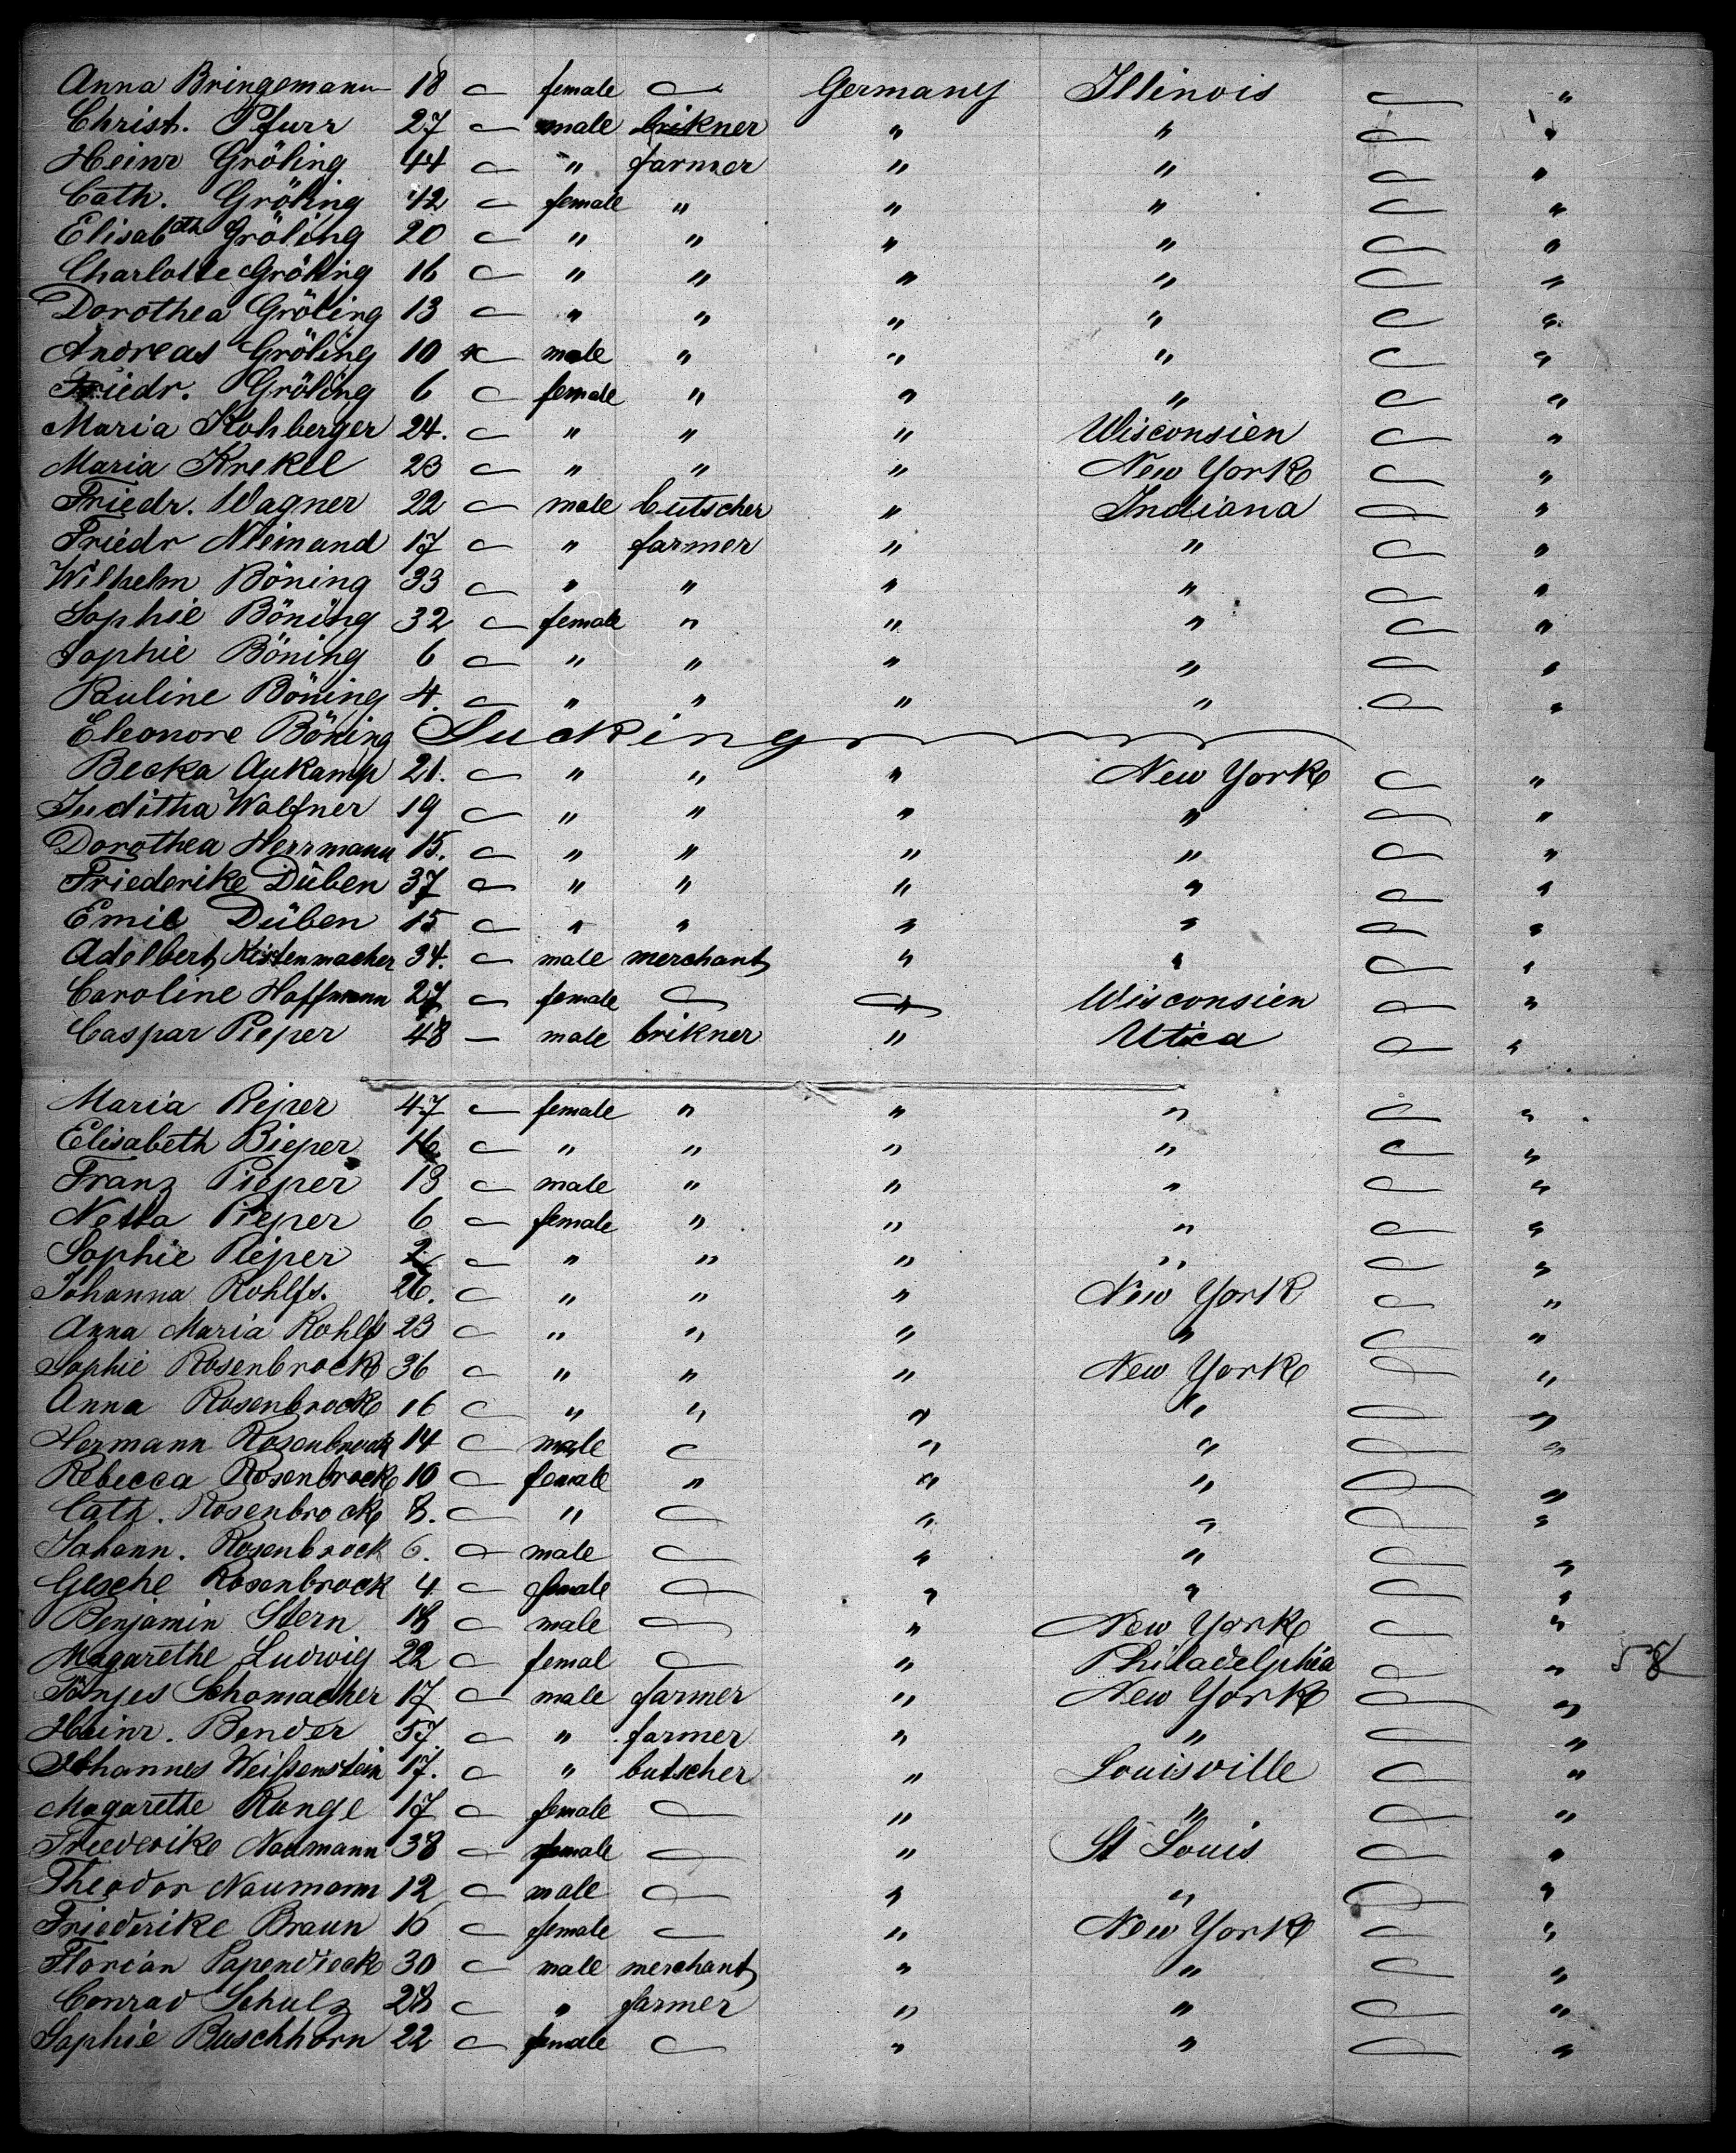 Anna Bringemann 18 female Germany Illinois "
Christ. Pfurr 27 male brikner " " "
Heinr Gröling 44 " farmer " " "
Cath. Gröling 42 female " " " "
Elisabeth Gröling 20 " " " " "
Charlotte Gröling 16 " " " " "
Dorothea Gröling 13 " " " " "
Andreas Gröling 10 male " " " "
Friedr. Gröling 6 female " " " "
Maria Kohberger 24. " " " Wisconsien "
Maria Krekel 23 " " " New York "
Friedr. Wagner 22 male butscher " Indiana "
Friedr Niemand 17 " farmer " " "
Wilhelm Böning 33 " " " " "
Sophie Böning 32 female " " " "
Sophie Böning 6 " " " " "
Pauline Böning 4. " " " " "
Eleonore Böning Sucking
Becka Aukamp 21. " " " New York "
Juditha Wolfner 19 " " " " "
Dorothea Herrmann 15. " " " " "
Friederike Düben 37 " " " " "
Emil Düben 15 " " " " "
Adelbert Kistenmacher 34. male merchant " " "
Caroline Hoffmann 27 female " Wisconsien "
Caspar Pieper 48 male brikner " Utica "
Maria Pieper 47 female " " " "
Elisabeth Bieper 16 " " " " "
Franz Pieper 13 male " " " "
Netta Pieper 6 female " " " "
Sophie Pieper 2 " " " " "
Johanna Rohlfs. 26. " " " New York "
Anna Maria Rohlfs 23 " " " " "
Sophie Rosenbrock 36 " " " New York "
Anna Rosenbrock 16 " " " " "
Hermann Rosenbrock 14 male " " "
Rebecca Rosenbrock 10 female " " " "
Cath. Rosenbrock 8. " " " "
Johann. Rosenbrock 6. male " " "
Gesche Rosenbrock 4 female " " "
Benjamin Stern 18 male " New York "
Magarethe Ludwig 22 femal " Philadelphia " 58
Tönjes Schomacher 17 male farmer " New York "
Heinr. Bender 57. " farmer " " "
Johannes Weißenstein 17. " butscher " Louisville "
Magarethe Runge 17 female " " "
Friederike Naumann 38 female " St Louis "
Theodor Naumann 12 male " " "
Friederike Braun 10 female " New York "
Florian Papendieck 30 male merchant " " "
Conrad Schulz 28 " farmer " " "
Sophie Buschhorn 22 female " " "